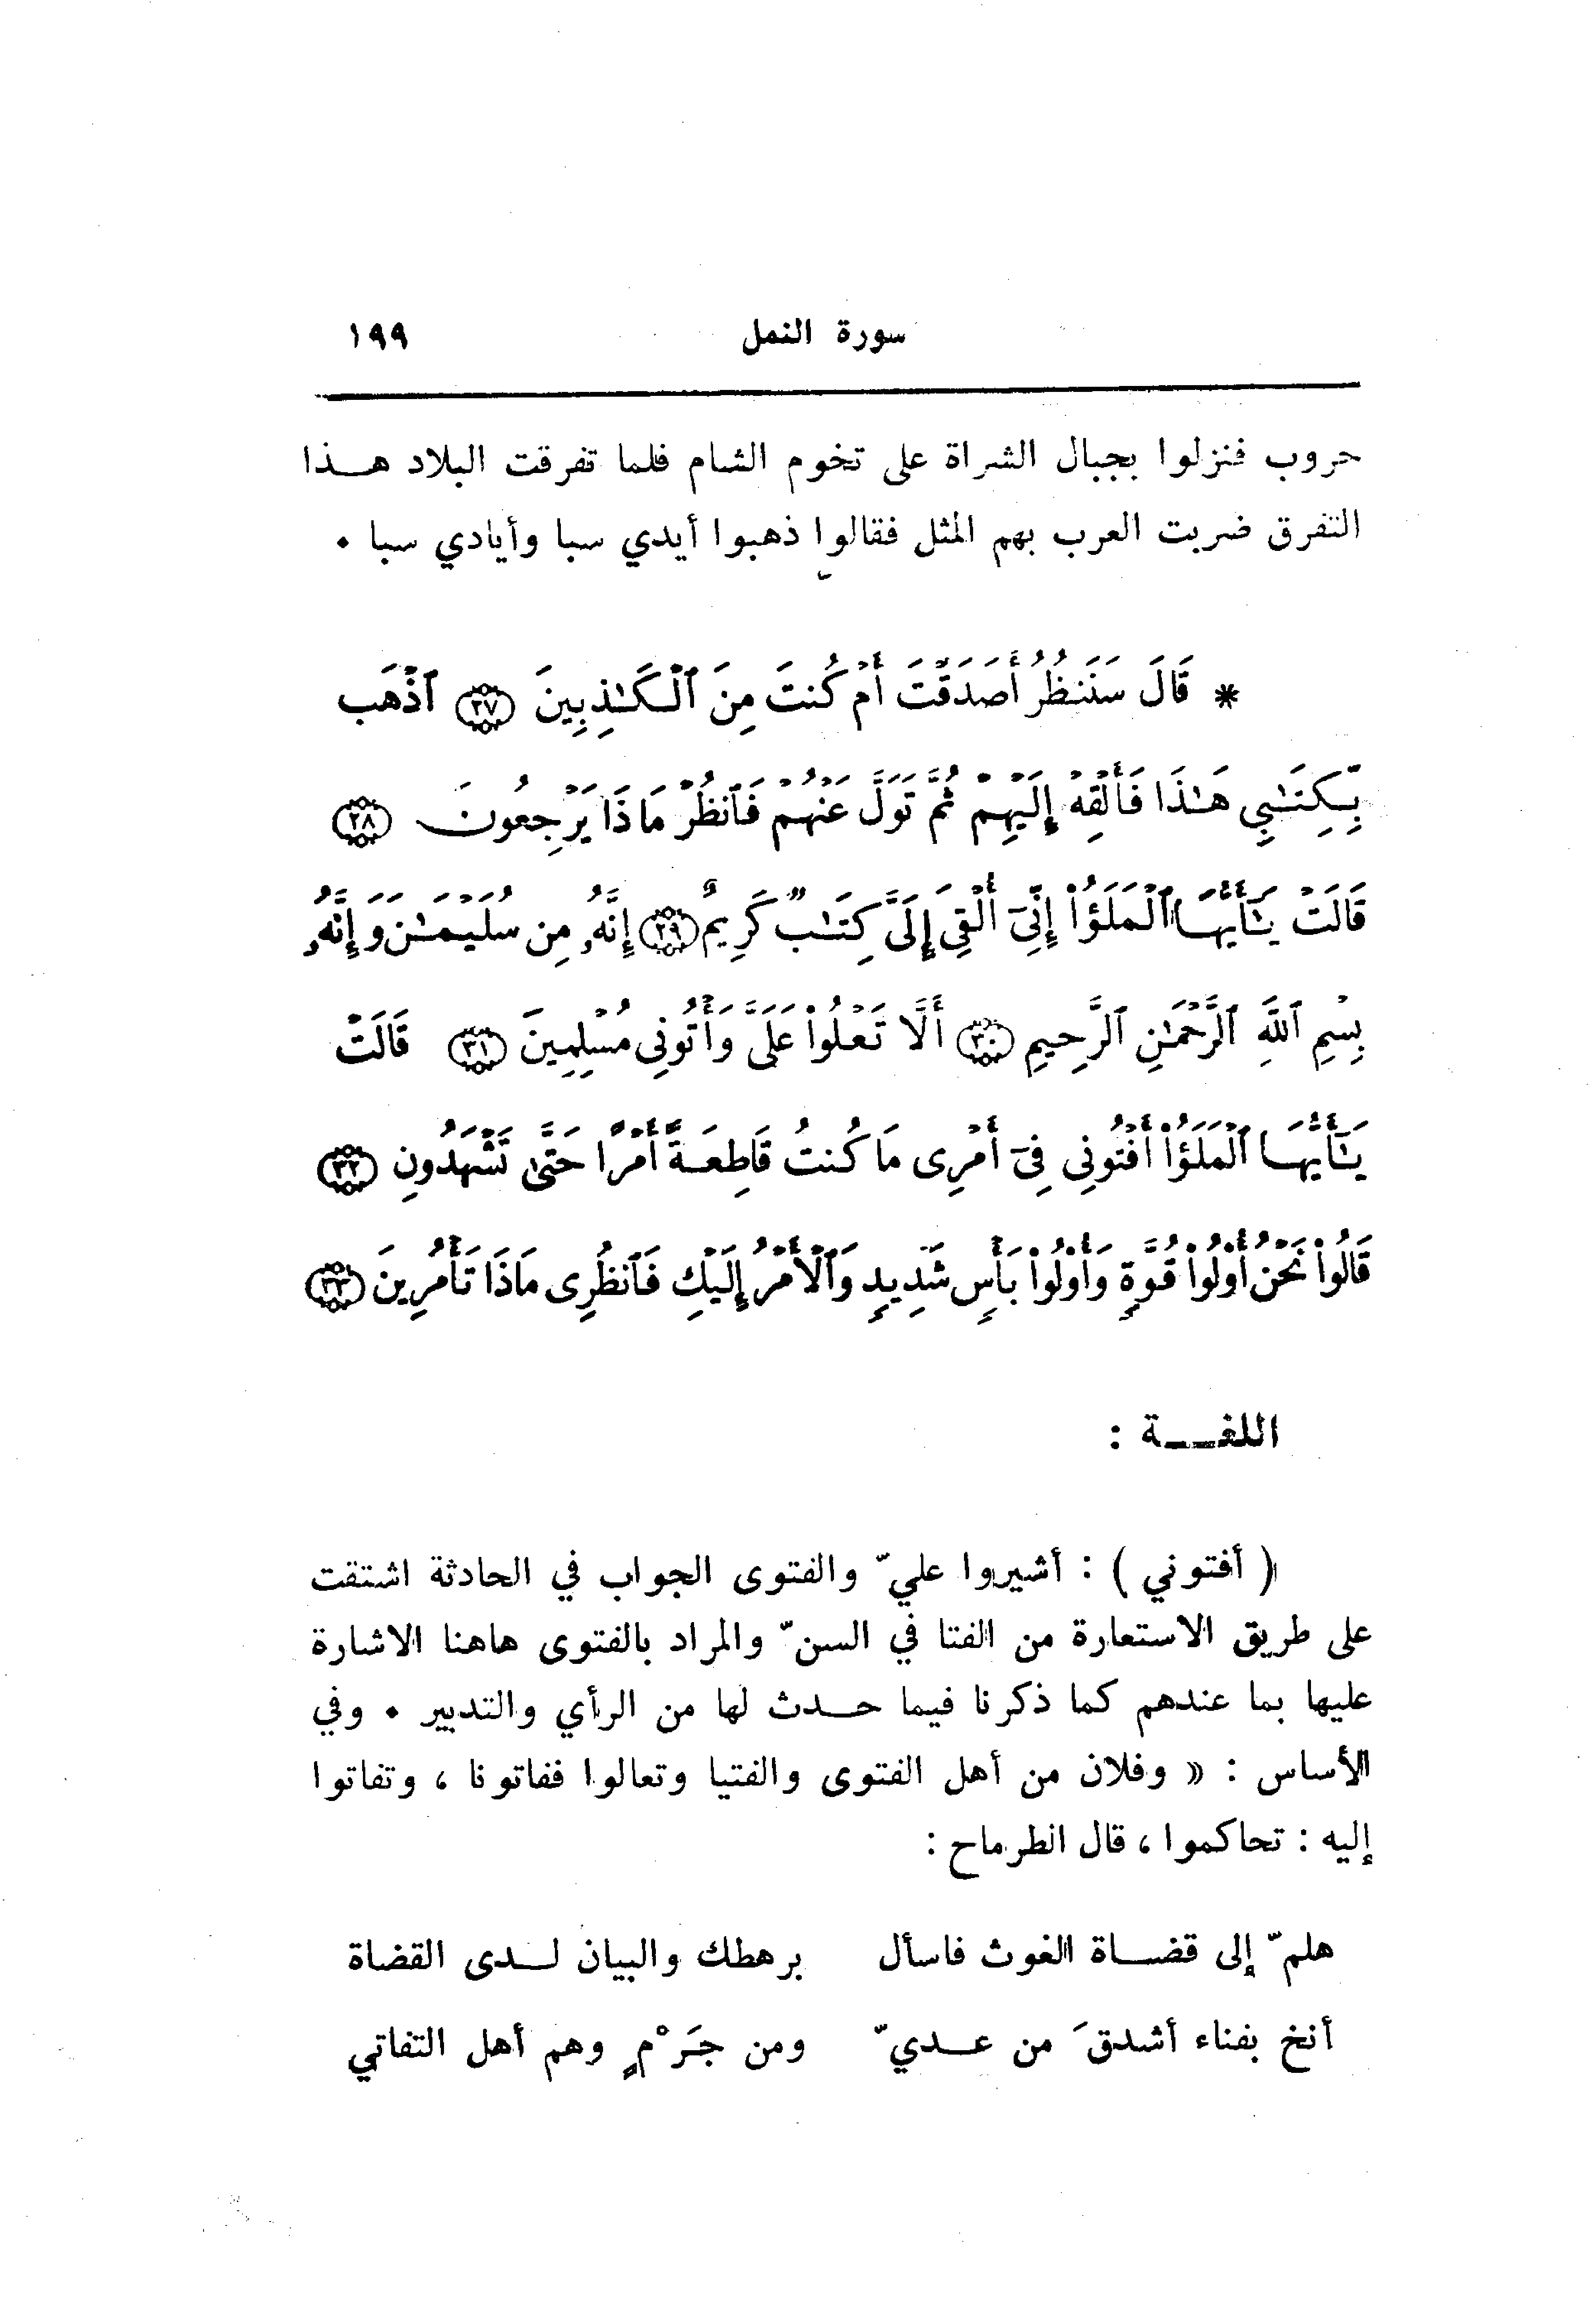 سورة النمل ١٩٩
حروب فنزلوا بجبال الشراة على تخوم الشام فلما تفرقت البلاد هـــذا
التفرق ضربت العرب بهم المثل فقالوا ذهبوا أيدي سبا وأيادي سبا ٠
* قَالَ سَنَنظُرُ أَصَدَقْتَ أَمْ كُنتَ مِنَ ٱلْكَـٰذِبِينَ ﴿٢٧﴾ ٱذْهَب
بِّكِتَـٰبِي هَـٰذَا فَأَلْقِهْ إِلَيْهِمْ ثُمَّ تَوَلَّ عَنْهُمْ فَٱنظُرْ مَاذَا يَرْجِعُونَ ﴿٢٨﴾
قَالَتْ يَـٰٓأَيُّهَا ٱلْمَلَؤُاْ إِنِّىٓ أُلْقِىَ إِلَىَّ كِتَـٰبٌ كَرِيمٌ ﴿٢٩﴾ إِنَّهُۥ مِن سُلَيْمَـٰنَ وَإِنَّهُۥ
بِسْمِ ٱللَّهِ ٱلرَّحْمَـٰنِ ٱلرَّحِيمِ ﴿٣٠﴾ أَلَّا تَعْلُواْ عَلَىَّ وَأْتُونِى مُسْلِمِينَ ﴿٣١﴾ قَالَتْ
يَـٰٓأَيُّهَا ٱلْمَلَؤُاْ أَفْتُونِى فِىٓ أَمْرِى مَا كُنتُ قَاطِعَةً أَمْرًا حَتَّىٰ تَشْهَدُونِ ﴿٣٢﴾
قَالُواْ نَحْنُ أُوْلُواْ قُوَّةٍ وَأُوْلُواْ بَأْسٍ شَدِيدٍ وَٱلْأَمْرُ إِلَيْكِ فَٱنظُرِى مَاذَا تَأْمُرِينَ ﴿٣٣﴾
اللغـــة :
( أفتوني ) : أشيروا عليّ والفتوى الجواب في الحادثة اشتقت
على طريق الاستعارة من الفتا في السنّ والمراد بالفتوى هاهنا الاشارة
عليها بما عندهم كما ذكرنا فيما حـــدث لها من الرأي والتدبير ٠ وفي
الأساس : « وفلان من أهل الفتوى والفتيا وتعالوا ففاتونا ، وتفاتوا
إليه : تحاكموا ، قال الطرماح :
هلمّ إلى قضـــاة الغوث فاسأل برهطك والبيان لـــدى القضاة
أنخ بفناء أشدقَ من عـــديّ ومن جَرْمٍ وهم أهل التفاتي